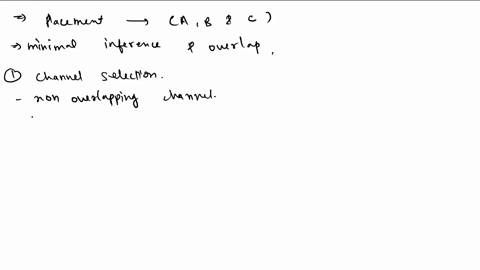 ⇒ Placement → (A, B & C)
→ minimal inference & overlap,
① channel selection.
- non overlapping channel.